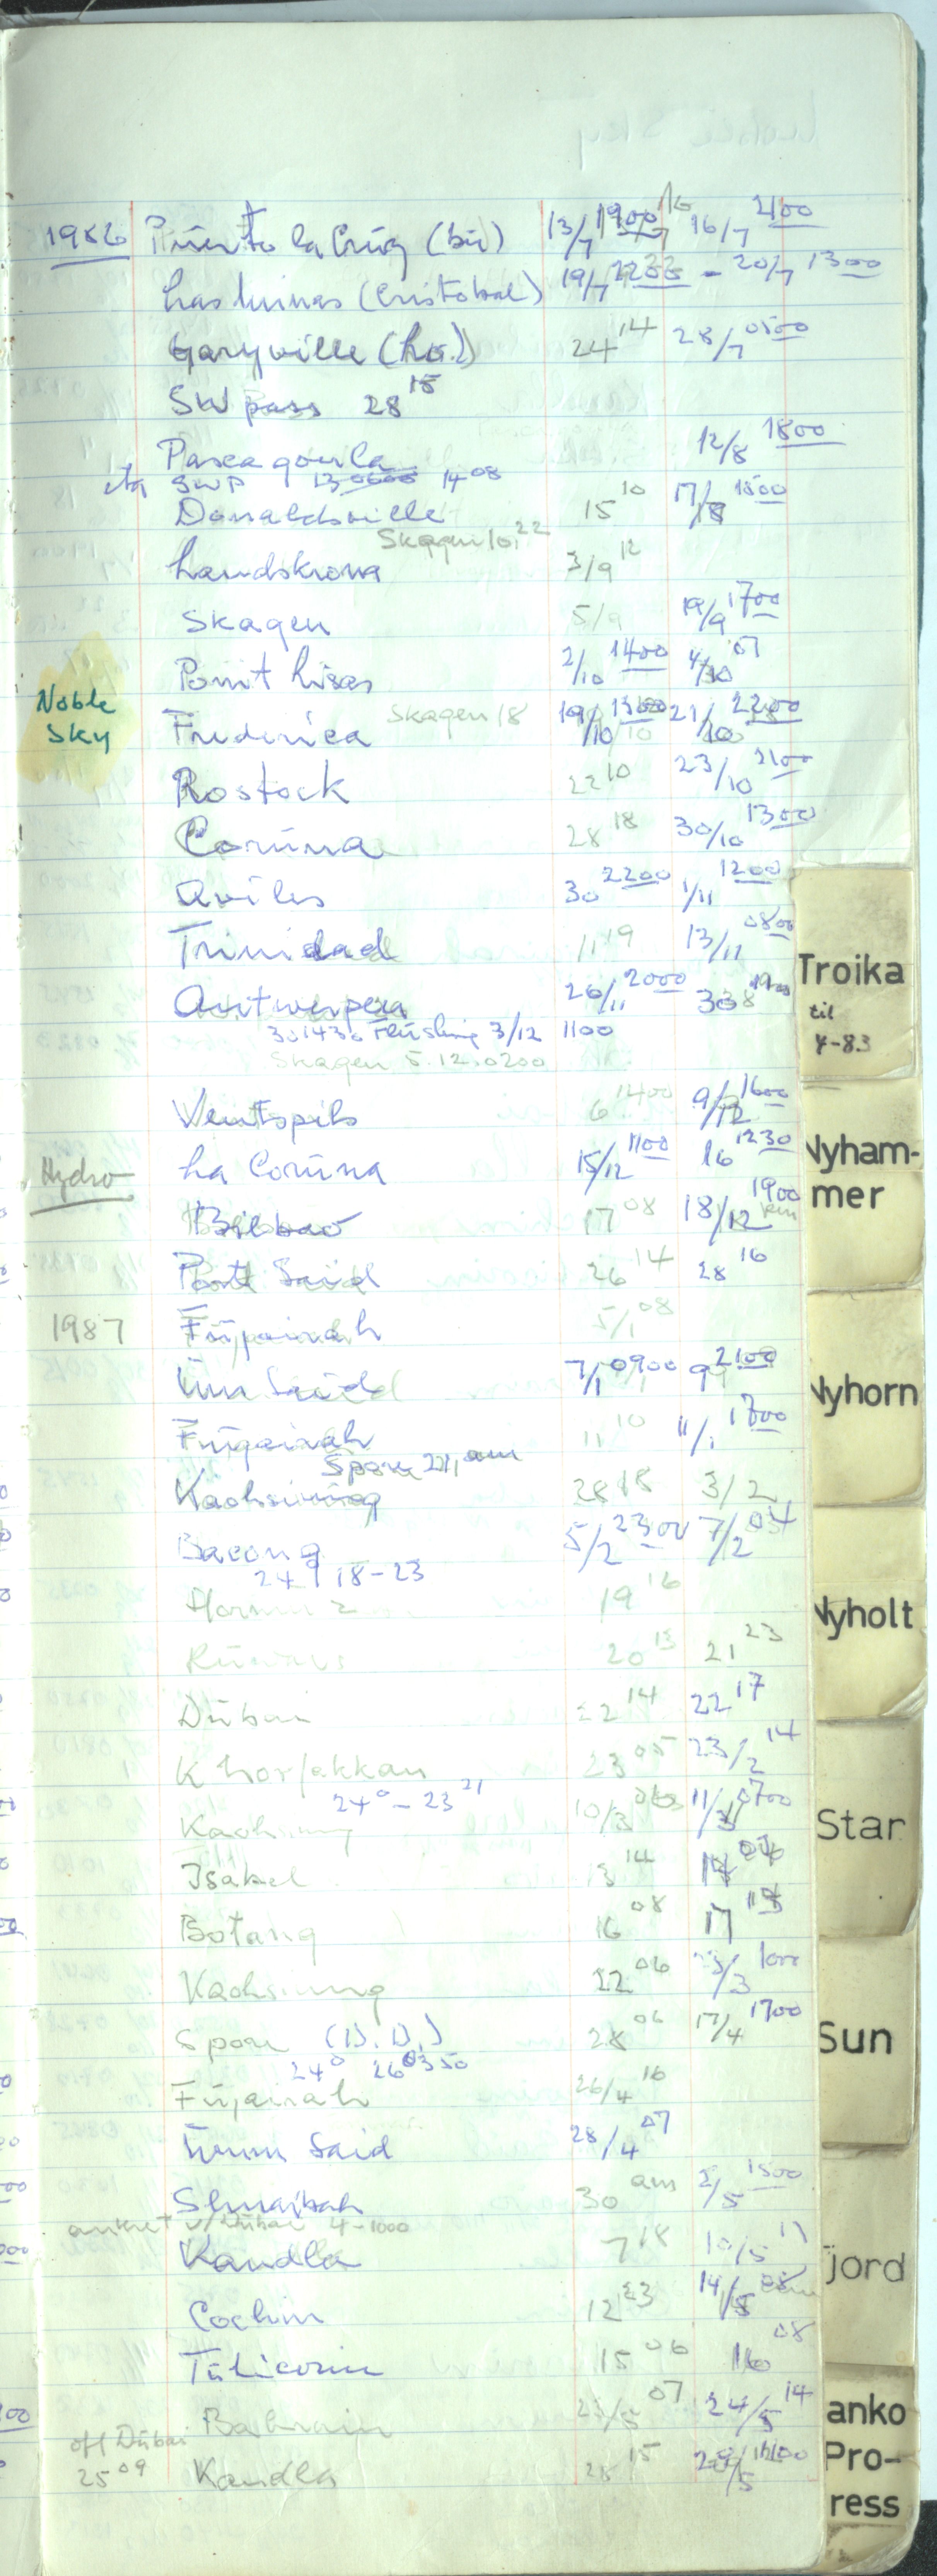 1986 Puerto la Cruz (bu) 13/7 1900 16/7 2400
Las Minas (Cristobal) 19/7 - 20/7 1300
Garyville (Lo.) 24 14 28/7 0500
SW pass 28 15
Pascagoula 12/8 1800
eta SWP 13 0600 14 08
Donaldsville 15 10 17/8 1500
Skagen 10, 22
Landskrona 3/9 12
Skagen 5/9 19/9 1700
Point Lisas 2/10 1400 4/10 07
Noble Sky
Skagen 18
Fredericia 19/10 1500 21/10 2200
Rostock 22 10 23/10 2100
Coruna 28 18 30/10 1300
Aviles 30 2200 1/11 1200
Trinidad 11 19 13/11 0800
Antwerpen 26/11 2000 30
301430 Flushing 3/12 1100
Skagen 5.12.0200
Ventspils 6 1400 9/12 1600
Hydro La Coruna 15/12 1100 16 1230
Bilbao 17 08 18/12 1900
Port Said 26 14 28 16
1987 Fujairah 5/1 08
Um Said 7/1 0900 9 2100
Fujairah 11 10 11/1 1700
Spore 21, am
Kaohsiung 28 18 3/2
Bacong 5/2 2300 7/2 04
24 18-23
Hormuz 19 16
Ruwais 20 13 21 23
Dubai 22 14 22 17
Khorfakkan 23 05 23/2 14
24 0 - 23 21
Kaohsiung 10/3 11/3 0700
Isabel 13 14 14
Botang 16 08 17
Kaohsiung 22 06 23/3 1000
Spore (D.D.) 28 06 17/4 1700
24 0 26 0350
Fujairah 26/4 16
Umm Said 28/4 07
Shuaibah 30 am 2/5 1500
ankret v/Dubai 4-1000
Kandla 7 18 10/5 17
Cochin 12 23 14/5
Tuticorin 15 06 16 08
Bahrain 23/5 07 24/5 14
off Dubai
25 09 Kandla 28 15
Troika
til
4-83
Nyham-
mer
Nyhorn
Nyholt
Star
Sun
jord
anko
Pro-
ress